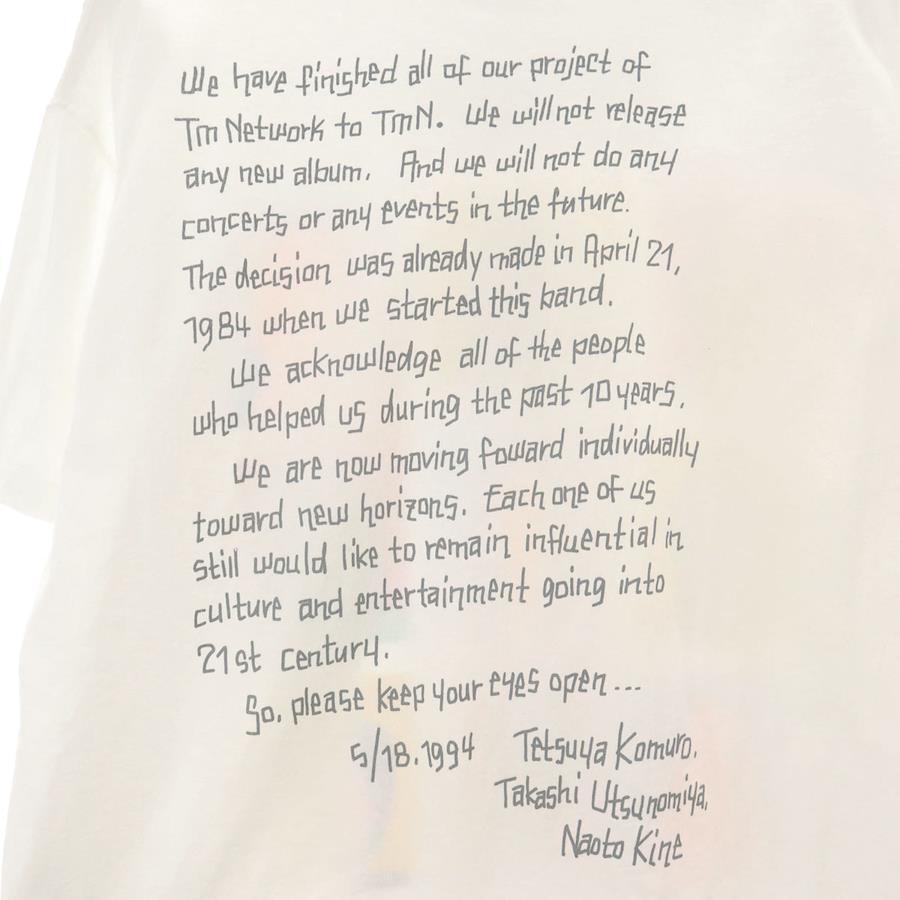 We have finished all of our project of
Tm Network to TmN. We will not release
any new album. And we will not do any
concerts or any events in the future.
The decision was already made in April 21,
1984 when we started this band.
We acknowledge all of the people
who helped us during the past 10 years.
We are now moving foward individually
toward new horizons. Each one of us
still would like to remain influential in
culture and entertainment going into
21st century.
So, please keep your eyes open...
5/18.1994 Tetsuya Komuro.
Takashi Utsunomiya,
Naoto Kine